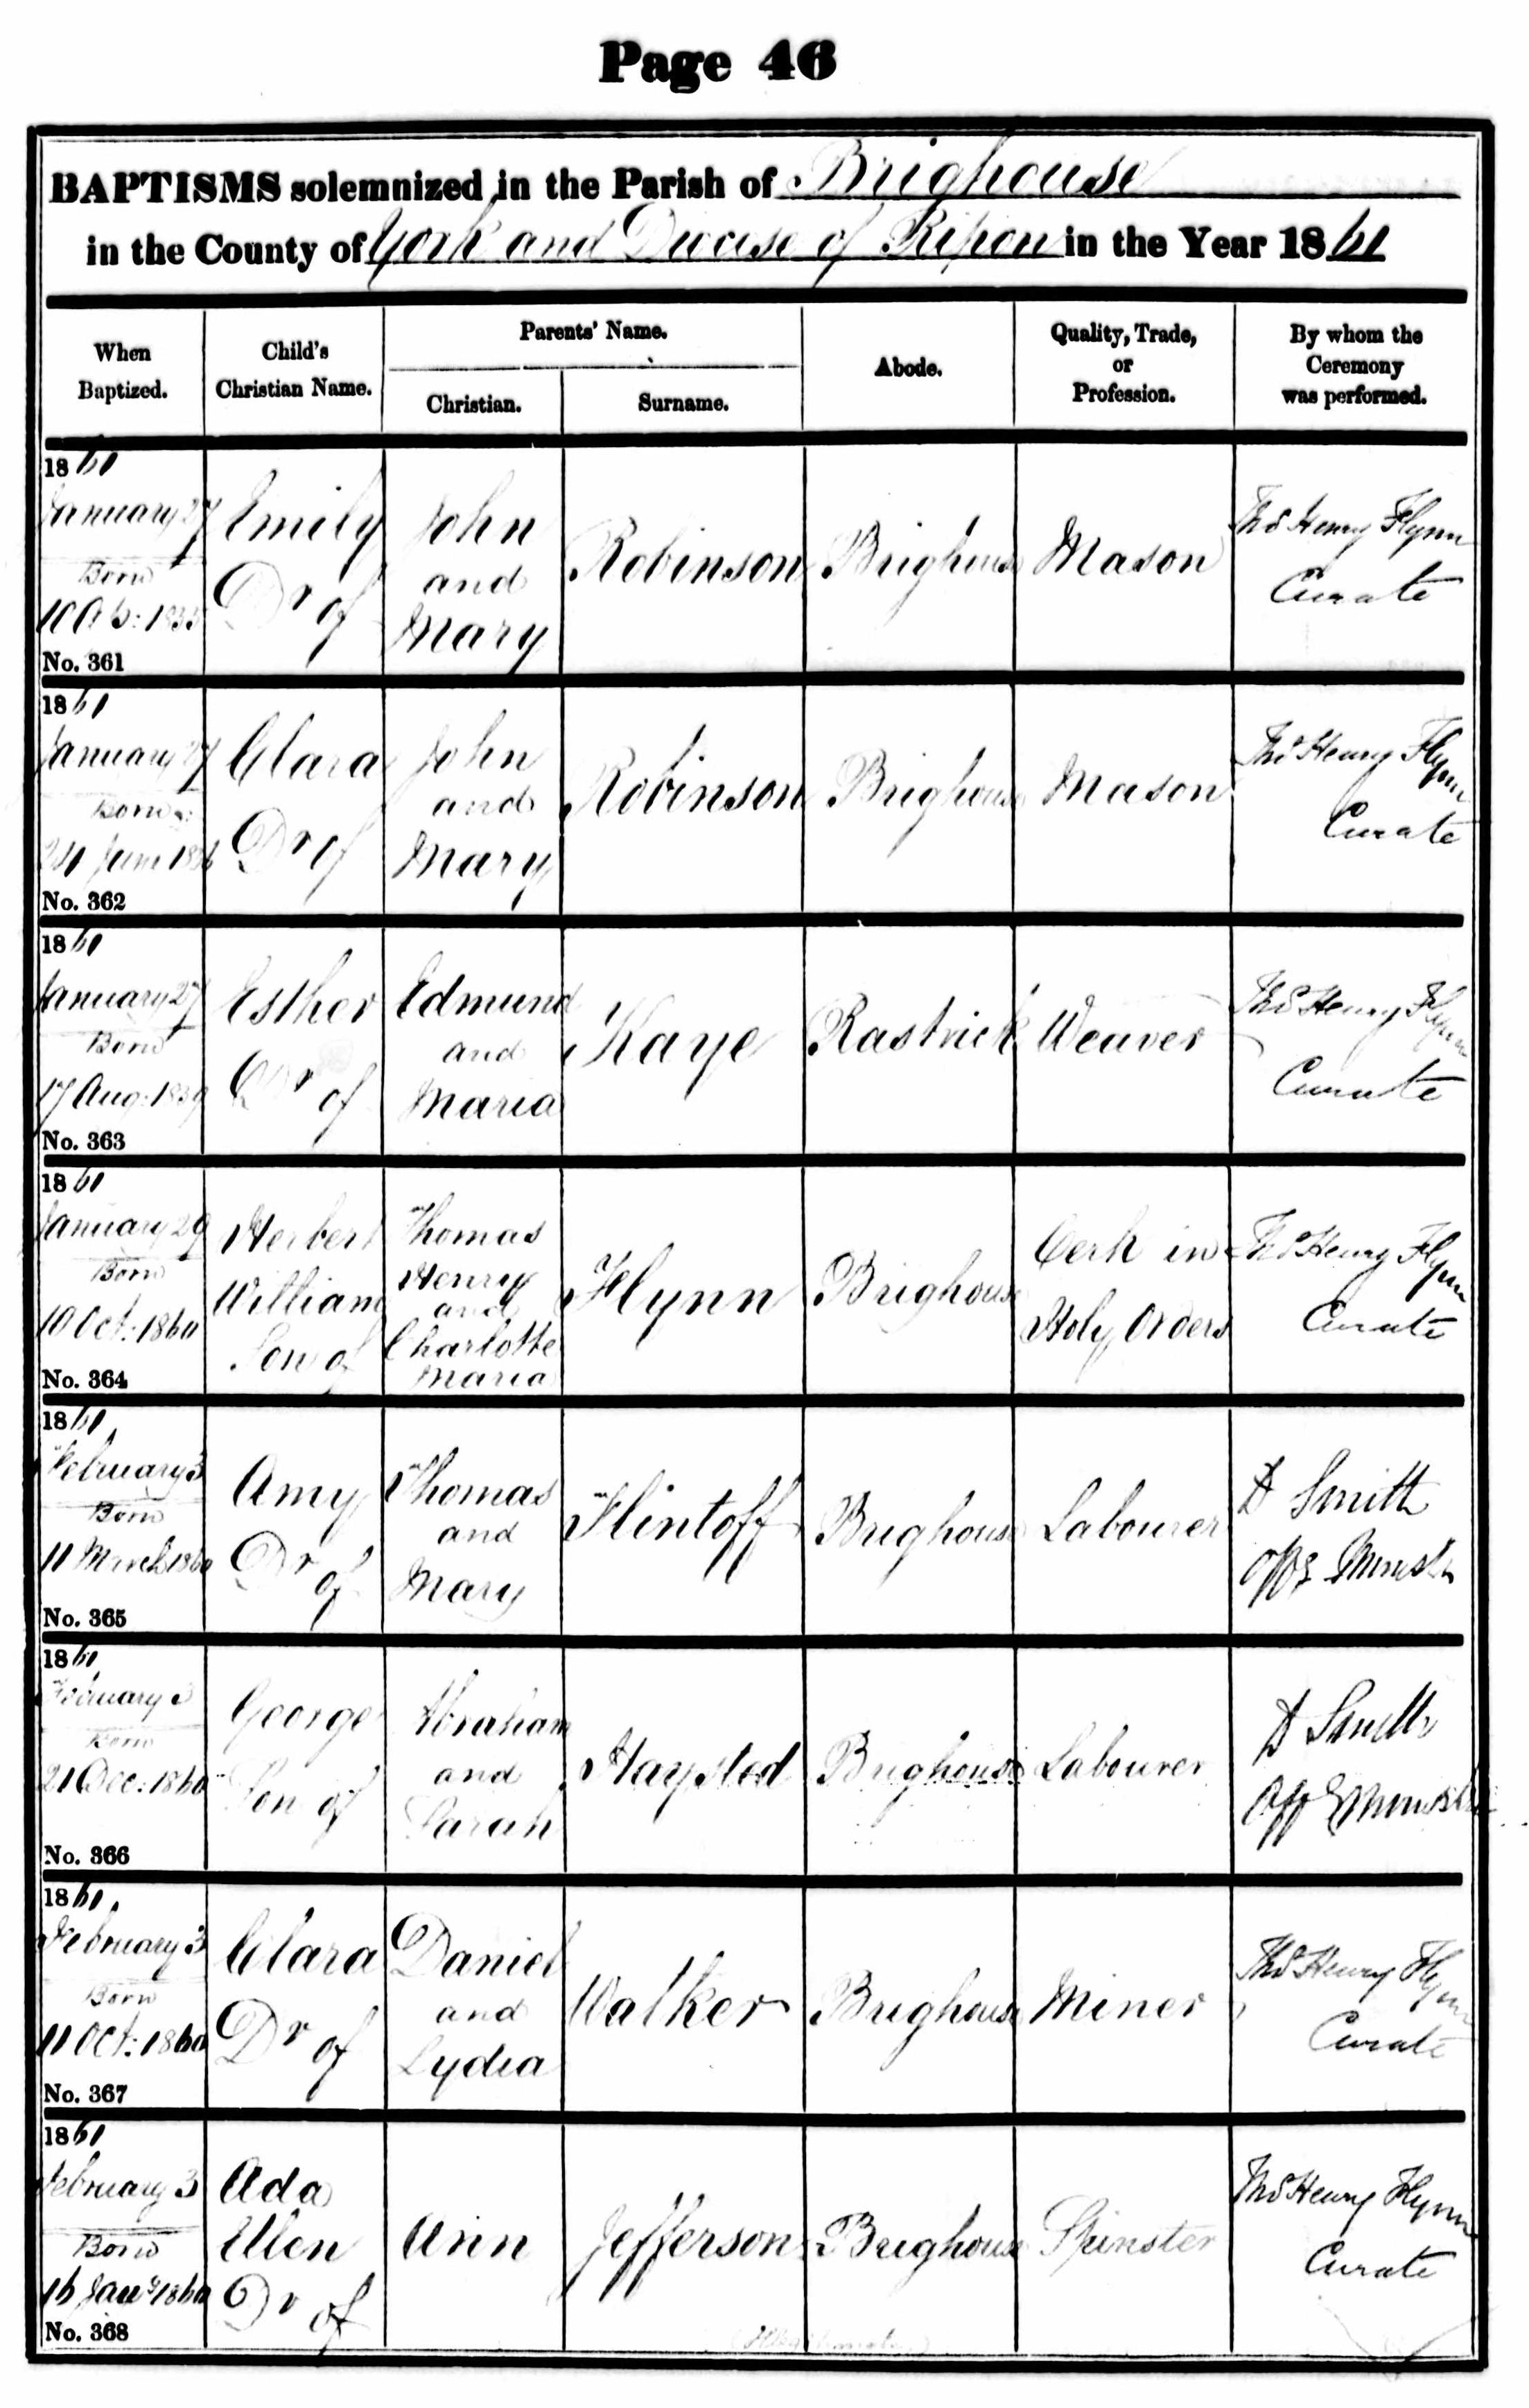 Page 46
BAPTISMS solemnized in the Parish of Brighouse
in the County of York and Diocese of Ripon in the Year 1861
When Baptized.
Child's Christian Name.
Parents' Name.
Christian.
Surname.
Abode.
Quality, Trade, or Profession.
By whom the Ceremony was performed.
1861
January 27
Born
10
No. 361
Emily
Dr of
John
and
Mary
Robinson
Brighouse
Mason
Thos Henry Flynn
Curate
1861
January 27
Born
24 June 1836
No. 362
Clara
Dr of
John
and
Mary
Robinson
Brighouse
Mason
Thos Henry Flynn
Curate
1861
January 27
Born
17 Aug: 1839
No. 363
Esther
Dr of
Edmund
and
Maria
Kaye
Rastrick
Weaver
Thos Henry Flynn
Curate
1861
January 29
Born
10 Oct: 1860
No. 364
Herbert
William
Son of
Thomas
Henry
and
Charlotte
Maria
Flynn
Brighouse
Clerk in
Holy Orders
Thos Henry Flynn
Curate
1861
February 3
Born
11 March 1860
No. 365
Amy
Dr of
Thomas
and
Mary
Flintoff
Brighouse
Labourer
Smith
Offg Minister
1861
February 3
Born
21 Dec: 1860
No. 366
George
Son of
Abraham
and
Sarah
Haysted
Brighouse
Labourer
Smith
Offg Minister
1861
February 3
Born
11 Oct: 1860
No. 367
Clara
Dr of
Daniel
and
Lydia
Walker
Brighouse
Miner
Thos Henry Flynn
Curate
1861
February 3
Born
16 Jany 1860
No. 368
Ada
Ellen
Dr of
Ann
Jefferson
Brighouse
Spinster
Thos Henry Flynn
Curate